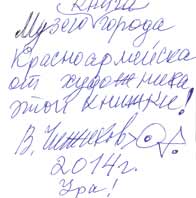 Книги
Музею города
Красноармейска
от художника
этой книжки!
В. Чижиков
2014г.
Ура!